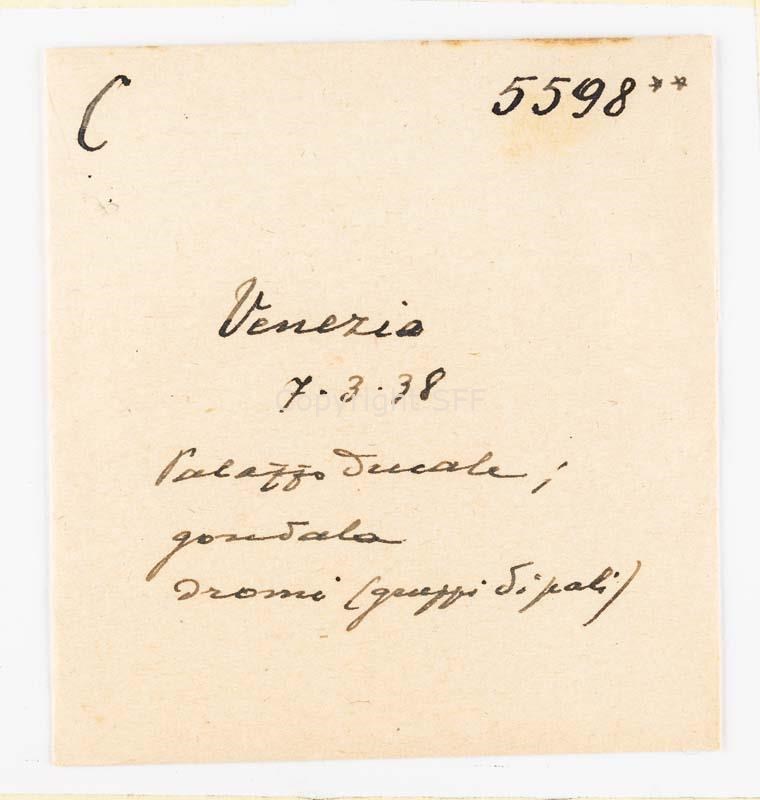 C 5598**
Venezia
7.3.38
Copyright SFF
Palazzo Ducale;
gondola
dromi (gruppi di pali)